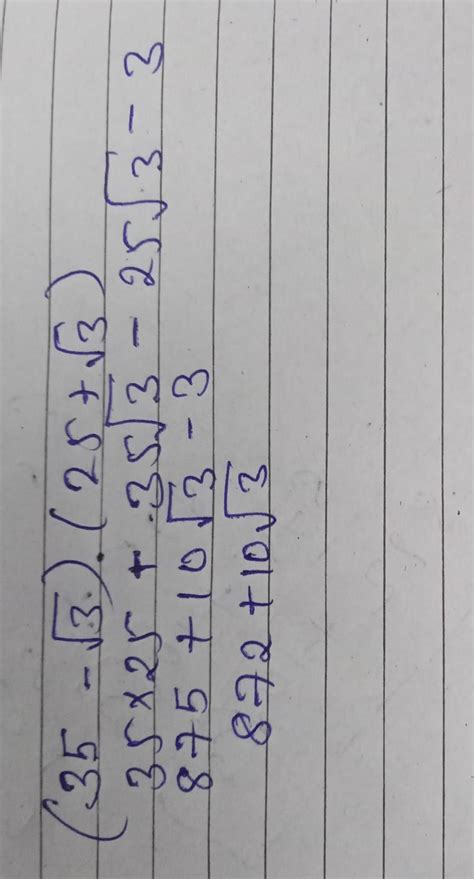 (35 - √3).(25 + √3)
35×25 + 35√3 - 25√3 - 3
875 + 10√3 - 3
872 + 10√3